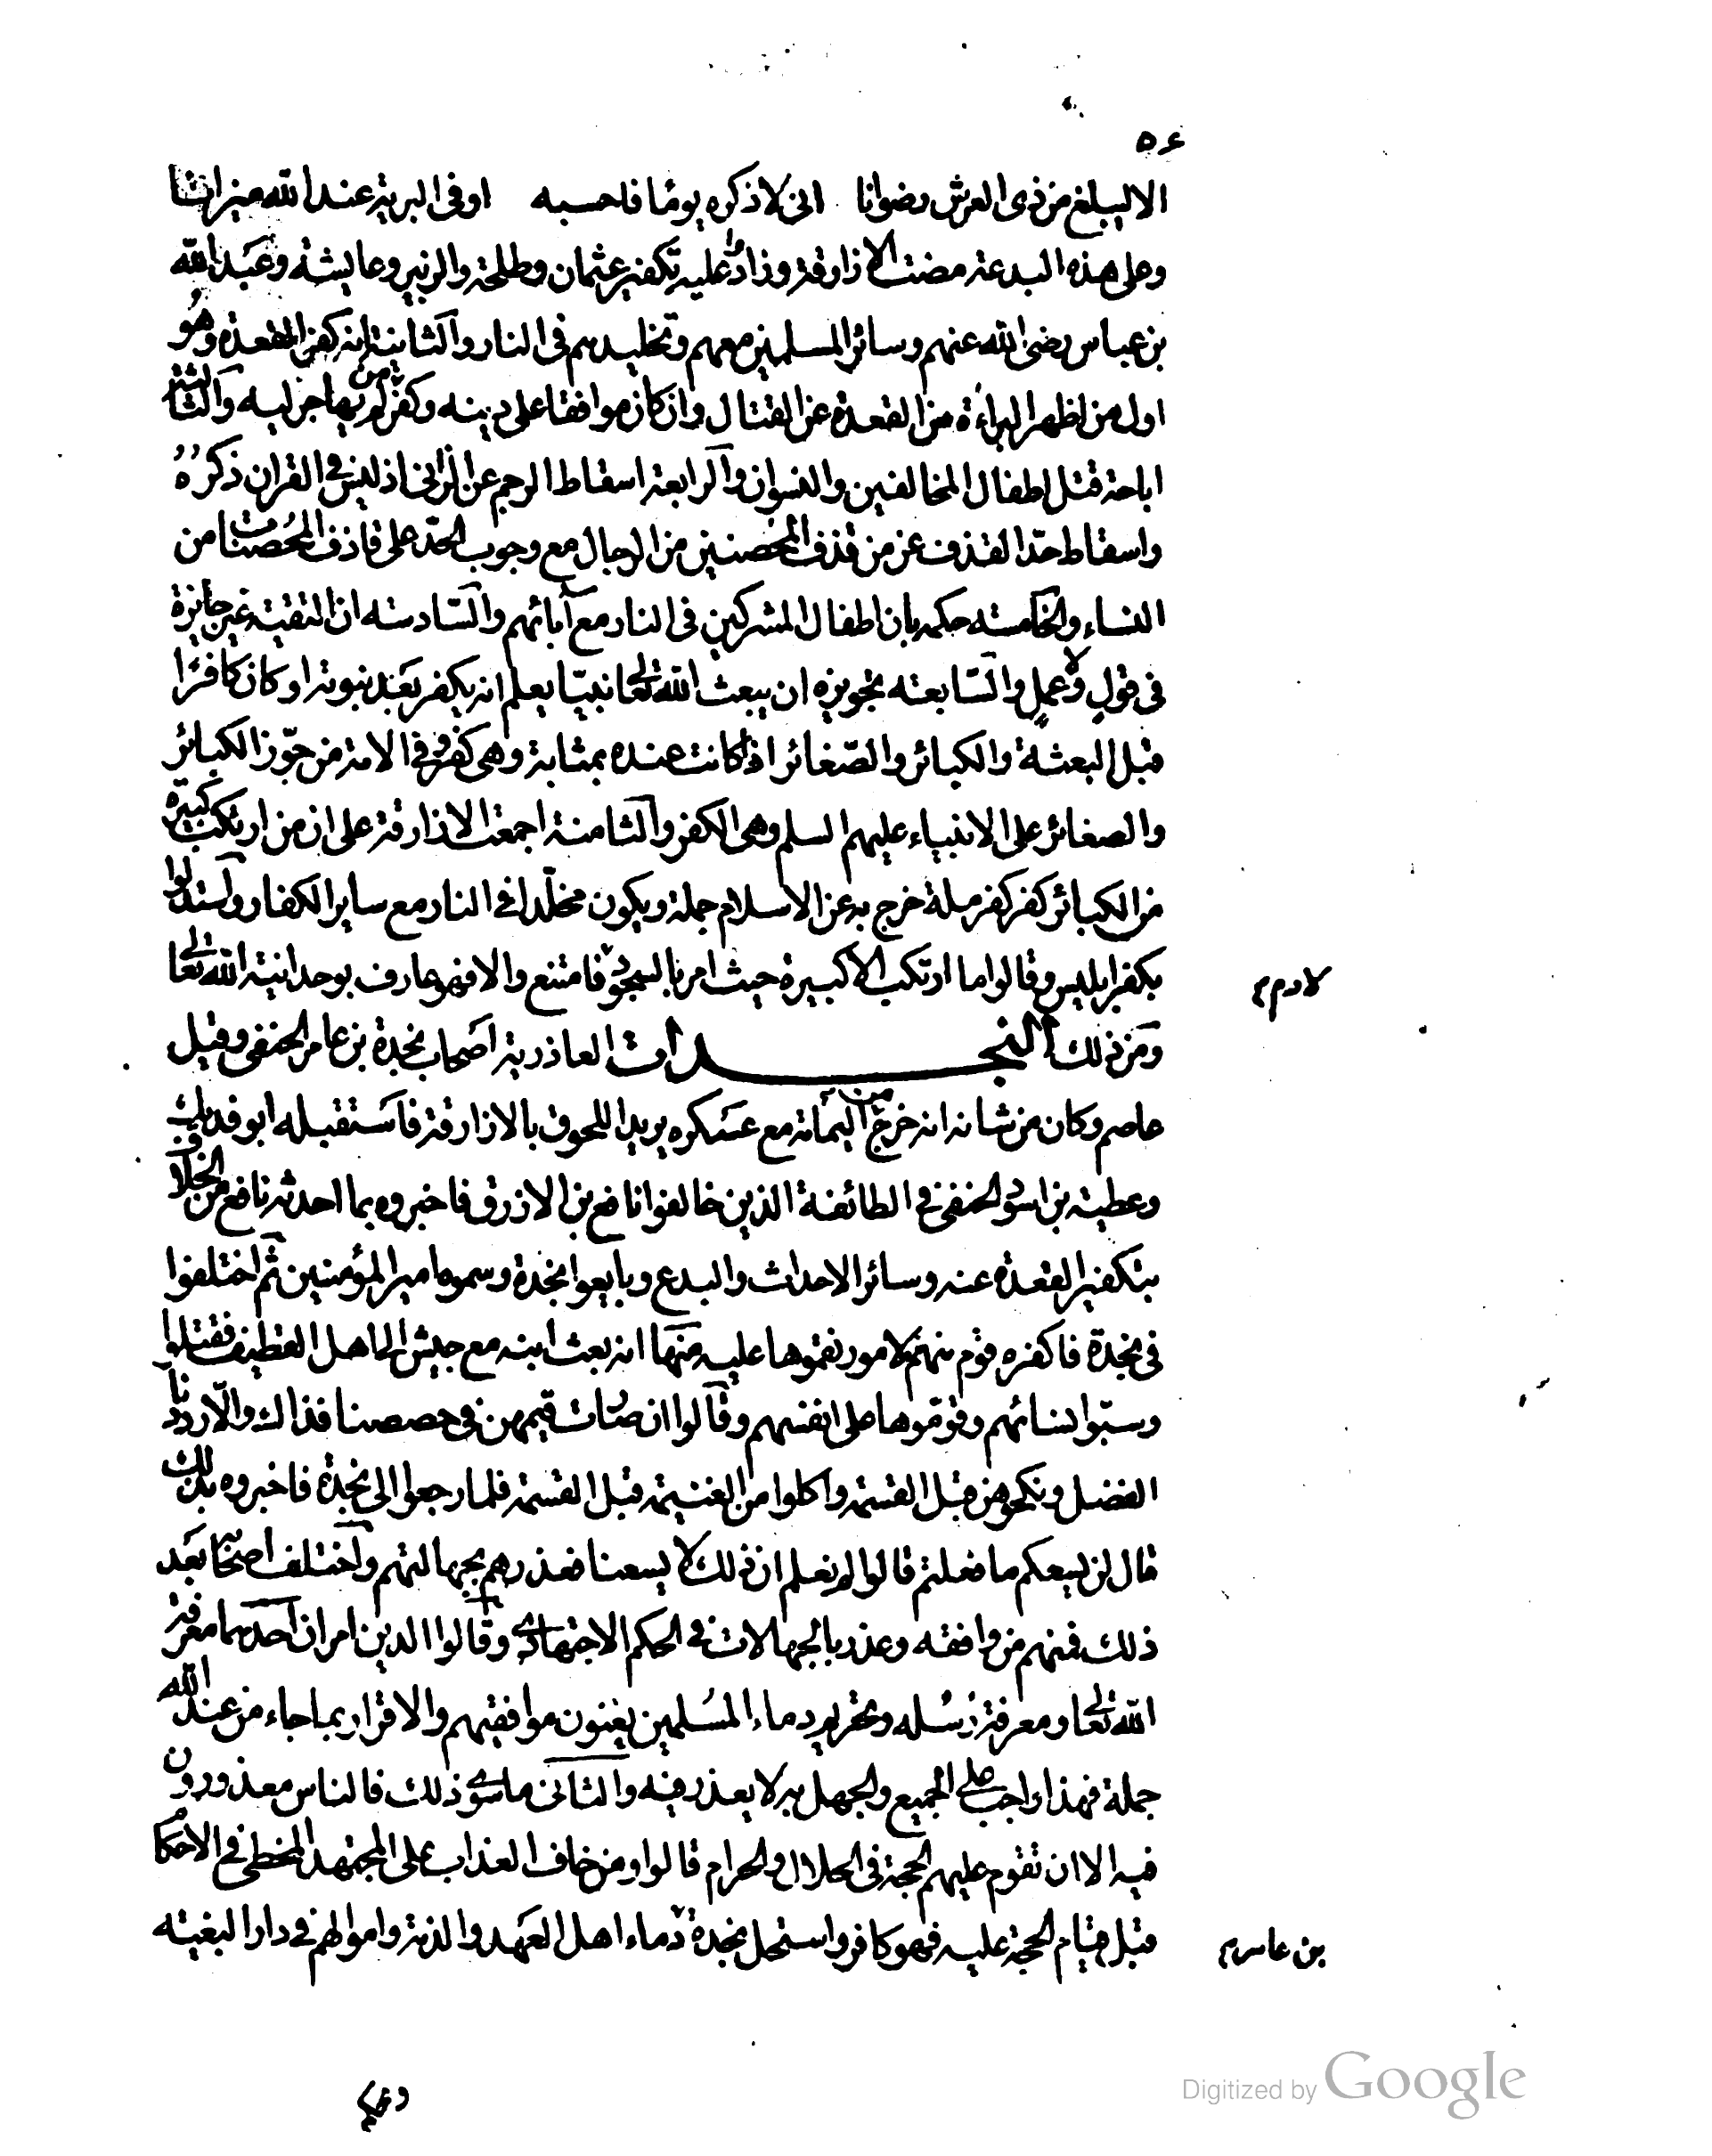 ٥٤
الا ليبلغ من ذى العرش رضوانا انى لاذكره يومًا فاحسبه اوفى البرية عند الله ميزانا
وعلى هذه البدعة مضت الازارقة وزادُوا عليه تكفير عثمان وطلحة والزبير وعايشة وعبد الله
بن عباس رضى الله عنهم وسائر المسلمين معهم وتخليدهم فى النار والثانية انه كفر القعدة وهُو
اول من اظهر البراءة من القعدة عن القتال وان كان موافقا على دينه وكفّر من لم يهاجر اليه والثالثة
اباحة قتل اطفال المخالفين والنسوان والرابعة اسقاط الرجم عن الزانى اذ ليس فى القران ذكرُهُ
واسقاط حدّ القذف عن من قذف المحصنين من الرجال مع وجوب الحدّ على قاذف المُحصنات من
النساء والخامسه حكمه بان اطفال المشركين فى النار مع آبائهم والسّادسه ان التقية غير جايزة
فى قولٍ ولا عملٍ والسّابعه تجويزه ان يبعث الله تعالى نبيّا يعلم انه يكفر بَعد نبوته او كان كافرًا
قبل البعثة والكبائر والصّغائر اذا كانت عنده بمثابة وهى كفر وفى الامة من جوّز الكبائر
والصغائر على الانبياء عليهم السلم وهى الكفر والثامنة اجمعت الازارقة على ان من ارتكب كبيرة
من الكبائر كفر كفر ملة خرج به عن الاسلام جملة ويكون مخلّدا فى النار مع ساير الكفار واستدلوا
بكفر ابليس وقالوا ما ارتكب الا كبيرة حيث امر بالسجود فامتنع والا فهو عارف بوحدانية الله تعالى
لادم م
ومن ذلك النجدات العاذرية اصحاب نجدة بن عامر الحنفى وقيل
عاصم وكان من شانه انه خرج من اليمامة مع عسكره يريد اللحوق بالازارقة فاستقبله ابو فديك
وعطية بن اسود الحنفى فى الطائفة الذين خالفوا نافع بن الازرق فاخبروه بما احدثه نافع من الخلاف
بتكفير القعدة عنه وسائر الاحداث والبدع وبايعوا نجدة وسموه امير المؤمنين ثم اختلفوا
فى نجدة فاكفره قوم منهم لامور نقموها عليه منها انه بعث ابنه مع جيش الى اهل القطيف فقتلوا
وسبّوا نسائهم وقوّموها على انفسهم وقالوا ان صارت قيمهن فى حصصنا فذاك والّا رددنا
الفضل ونكحوهن قبل القسمة واكلوا من الغنيمة قبل القسمة فلما رجعوا الى نجدة فاخبروه بذلك
قال لن يسعكم ما فعلتم قالوا لم نعلم ان ذلك لا يسعنا فعذرهم بجهالتهم واختلف اصحابه بَعد
ذلك فمنهم من وافقه وعذر بالجهالات فى الحكم الاجتهادى وقالوا الدين امران احدهما معرفة
الله تعالى ومعرفة رُسُله وتحريم دماء المُسلمين يعنون موافقيهم والاقرار بما جاء من عند الله
جملة فهذا واجب على الجميع والجهل به لا يعذر فيه والثانى ما سوى ذلك فالناس معذورون
فيه الا ان تقوم عليهم الحجة فى الحلال والحرام قالوا ومن خاف العذاب على المجتهد المخطى فى الاحكام
قبل قيام الحجة عليه فهو كافر واستحل نجدة دماء اهل العهد والذمة واموالهم فى دار البغيته
بن عامر م
Digitized by Google